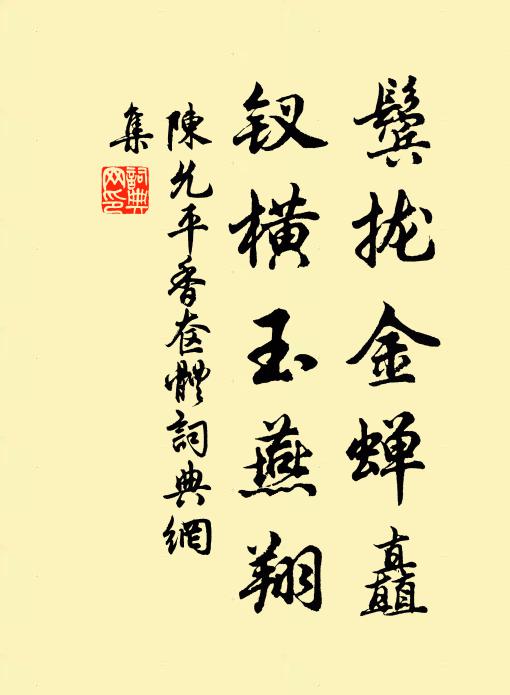 鬓拢金蝉矗
钗横玉燕翔
陳允平香奩體詞典網
集
詞典网印